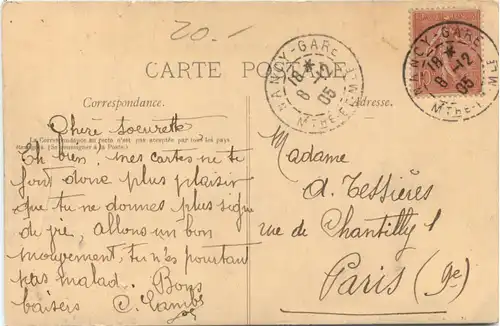 20.-
CARTE POSTALE
NANCY-GARE
18 *
8 -12
05
MTHE-ET-MLE
NANCY-GARE
18 *
8 -12
05
MTHE-ET-MLE
10
Correspondance.
Adresse.
La Correspondance au recto n'est pas acceptée par tous les pays
étrangers. (Se renseigner à la Poste.)
Chère soeurette
Eh bien! mes cartes ne te
font donc plus plaisir
que tu ne donnes plus signe
de vie, allons un bon
mouvement, tu n'es pourtant
pas malad. Bons
baisers C.
Madame
A. Tessières
rue de Chantilly 1
Paris (9e)